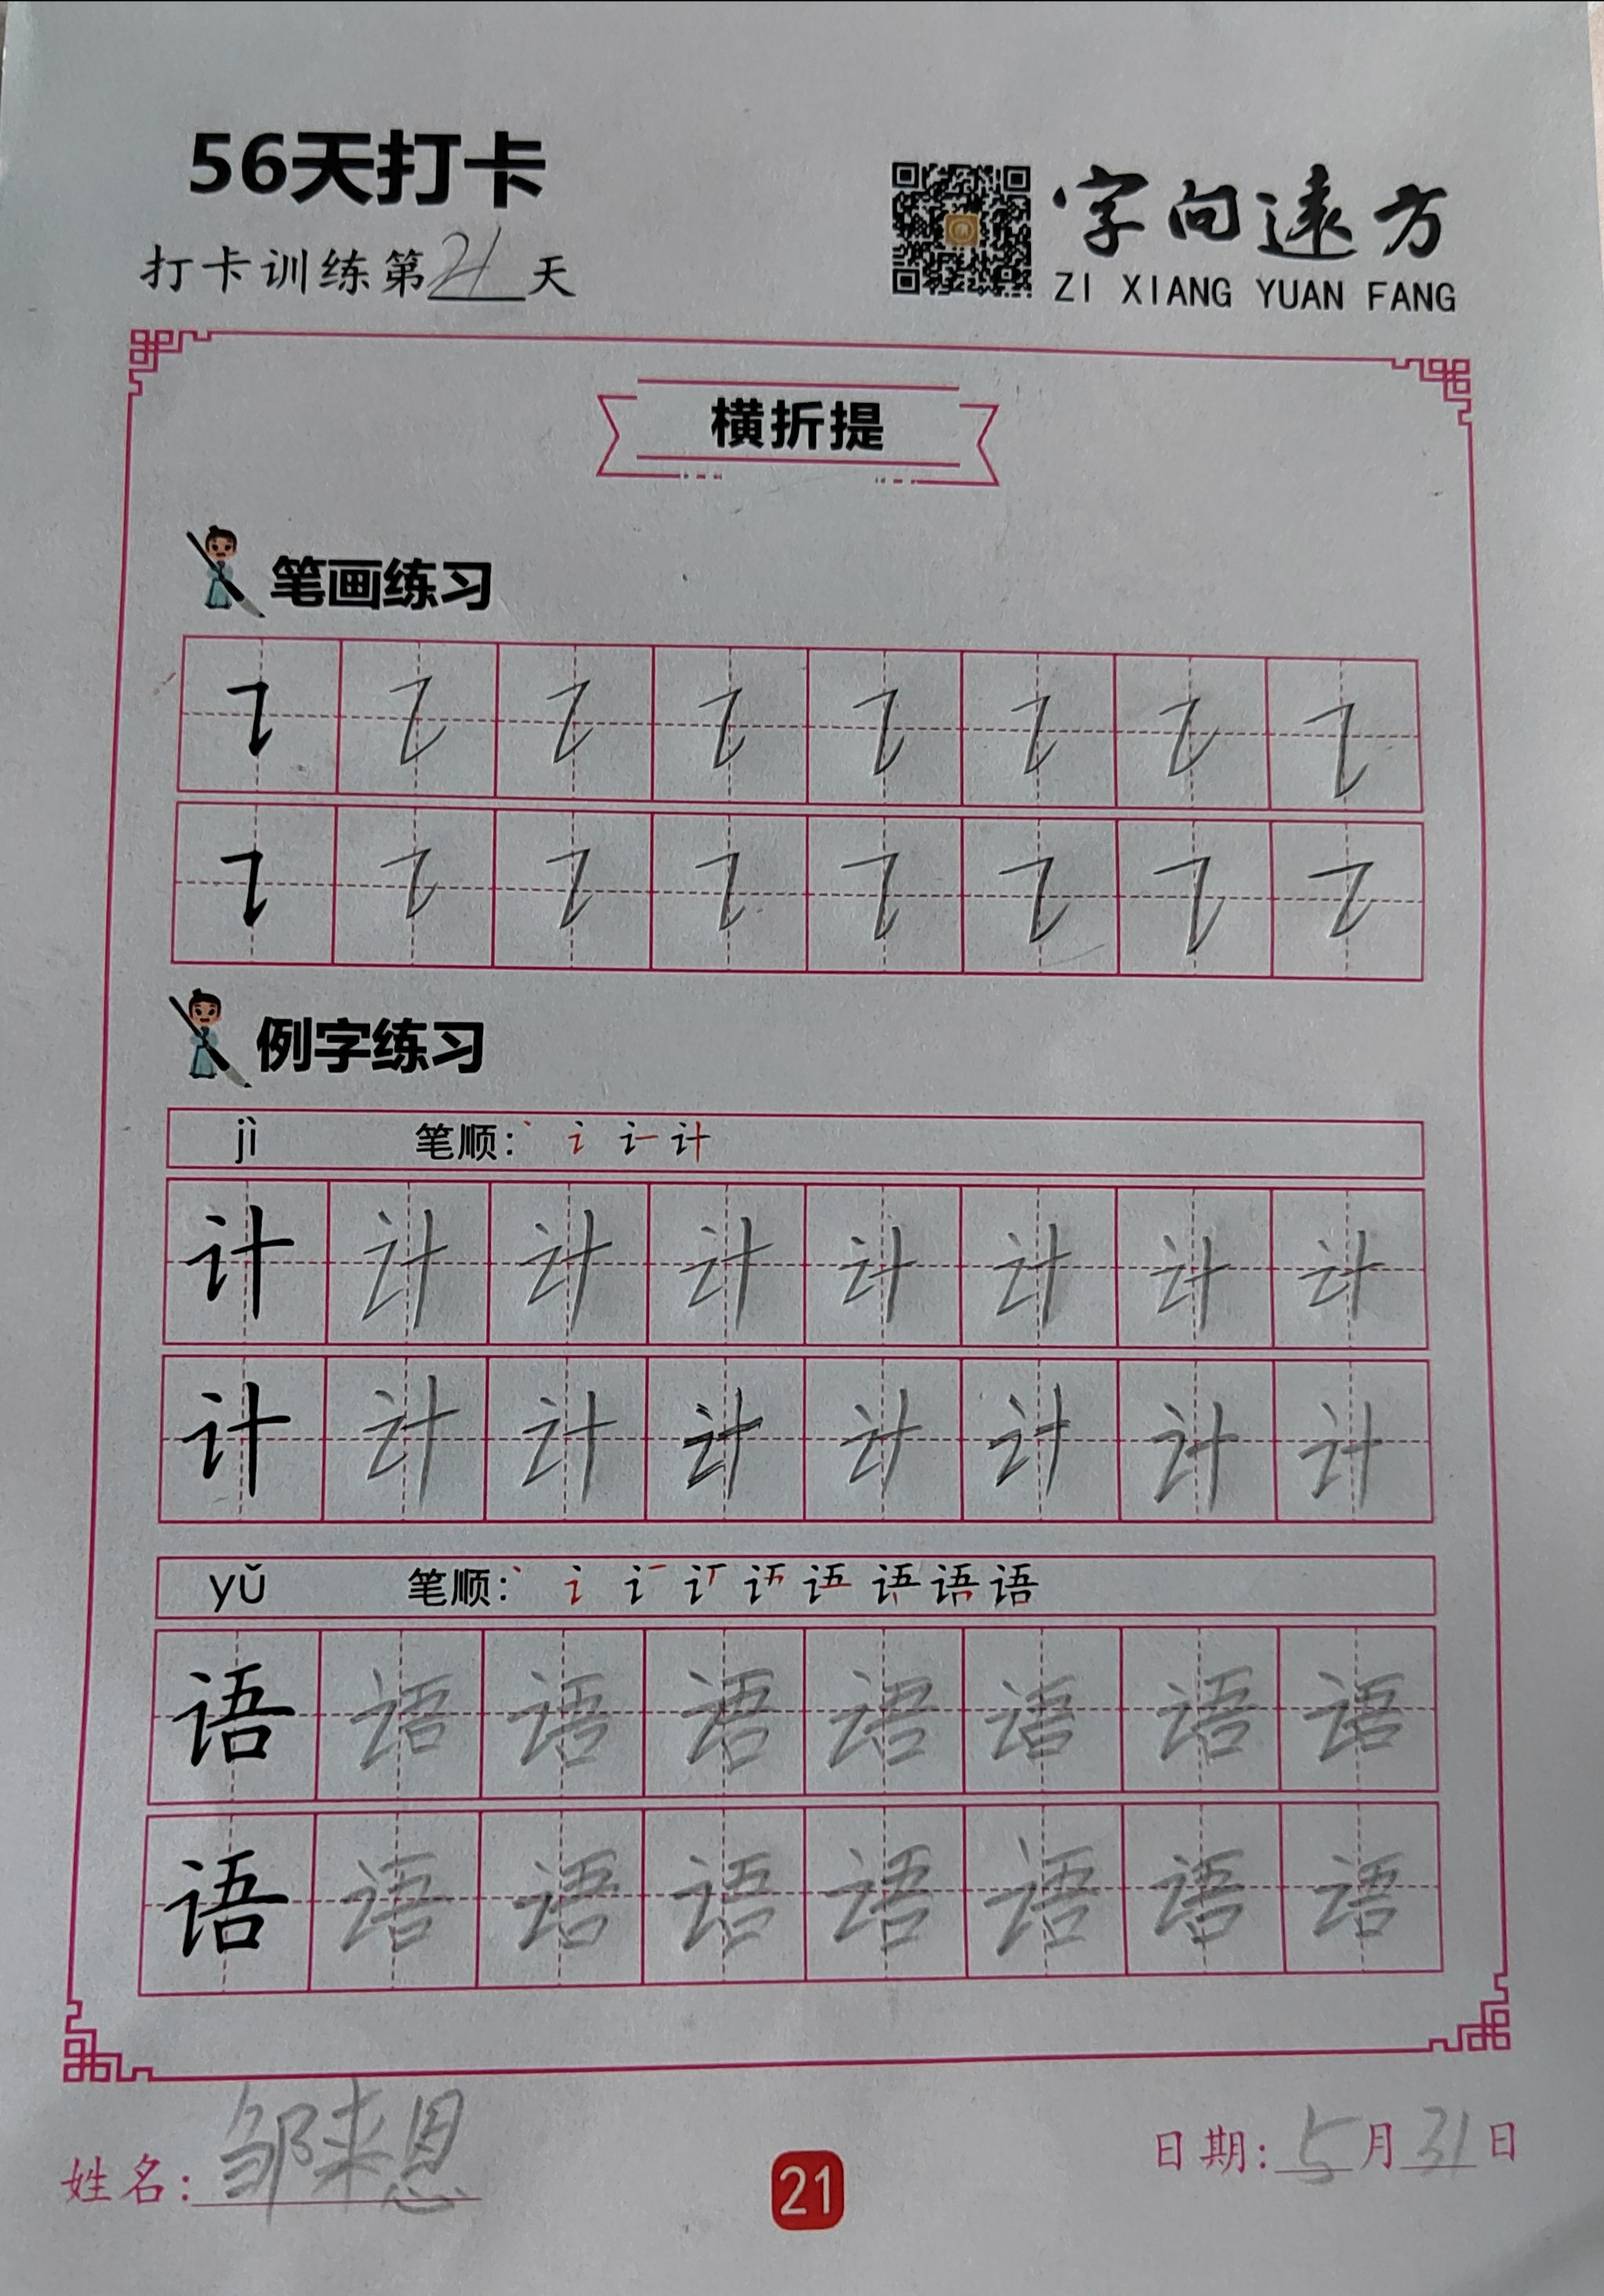 56天打卡
打卡训练第21天
字向遠方
ZI XIANG YUAN FANG
横折提
笔画练习
例字练习
jì 笔顺:
计 计 计 计 计 计 计 计
计 计 计 计 计 计 计 计
yǔ 笔顺:
语 语 语 语 语 语 语 语
语 语 语 语 语 语 语 语
姓名:邹来恩
21
日期:5月31日